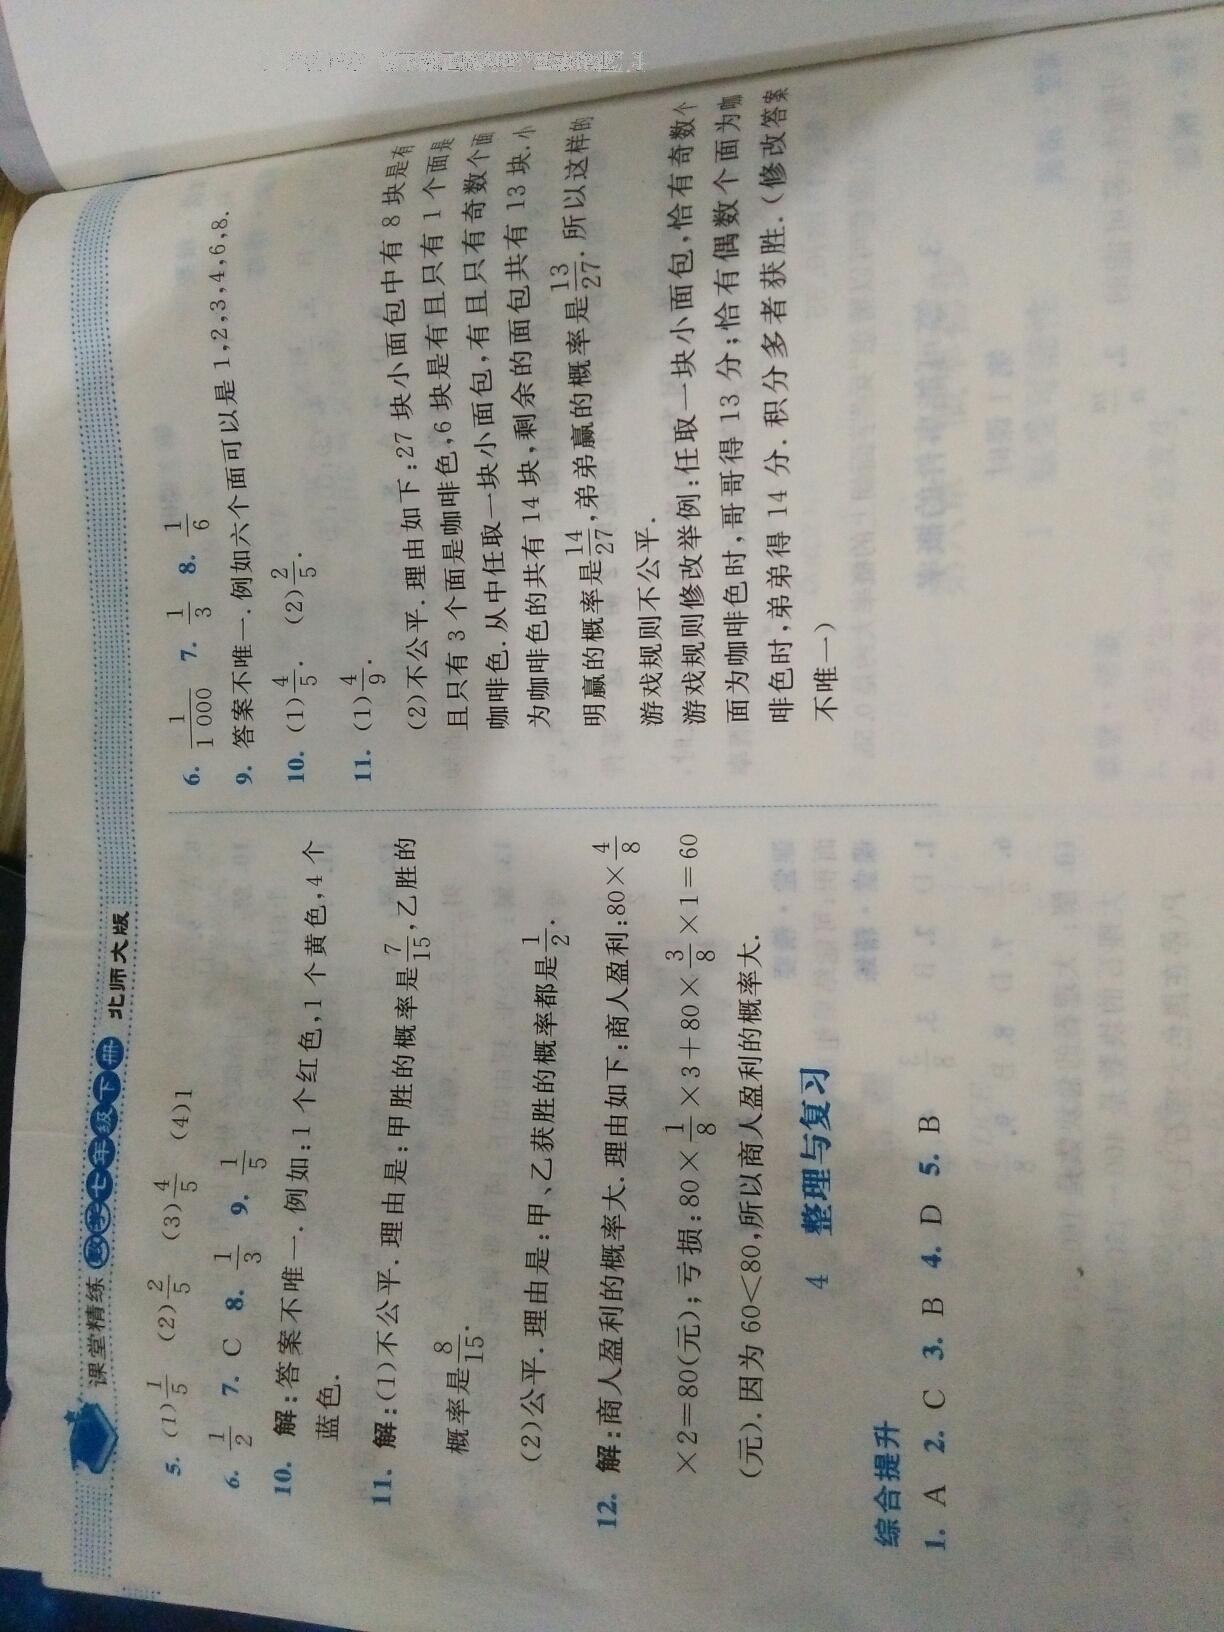 课堂精练 数学七年级下册 北师大版
5. (1)1/5 (2)2/5 (3)4/5 (4)1
6. 1/2 7. C 8. 1/3 9. 1/5
10. 解:答案不唯一.例如:1个红色,1个黄色,4个
蓝色.
11. 解:(1)不公平.理由是:甲胜的概率是7/15,乙胜的
概率是8/15.
(2)公平.理由是:甲、乙获胜的概率都是1/2.
12. 解:商人盈利的概率大.理由如下:商人盈利:80×4/8
×2=80(元);亏损:80×1/8×3+80×3/8×1=60
(元).因为60<80,所以商人盈利的概率大.
4 整理与复习
综合提升
1. A 2. C 3. B 4. D 5. B
6. 1/1 000 7. 1/3 8. 1/6
9. 答案不唯一.例如六个面可以是1,2,3,4,6,8.
10. (1)4/5. (2)2/5.
11. (1)4/9.
(2)不公平.理由如下:27块小面包中有8块是有
且只有3个面是咖啡色,6块是有且只有1个面是
咖啡色.从中任取一块小面包,有且只有奇数个面
为咖啡色的共有14块,剩余的面包共有13块.小
明赢的概率是14/27,弟弟赢的概率是13/27.所以这样的
游戏规则不公平.
游戏规则修改举例:任取一块小面包,恰有奇数个
面为咖啡色时,哥哥得13分;恰有偶数个面为咖
啡色时,弟弟得14分.积分多者获胜.(修改答案
不唯一)